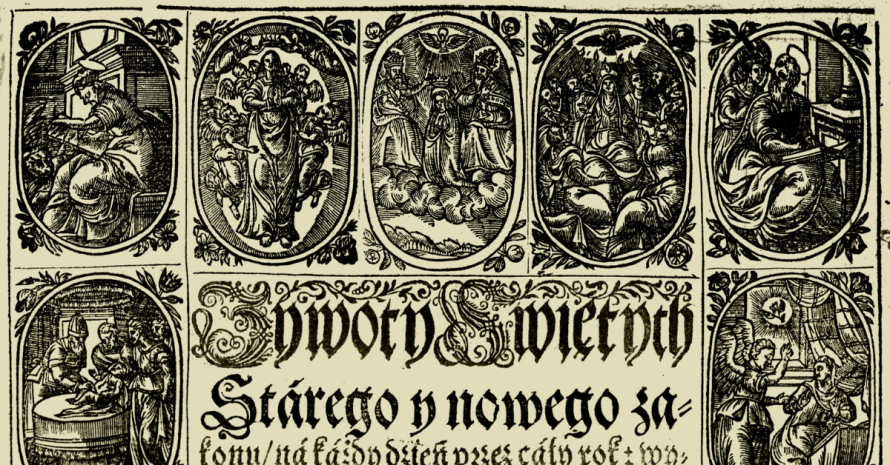 Żywoty Swiętych
Stárego y nowego za⸗
konu/ ná káżdy dźień przez cáły rok: wy⸗